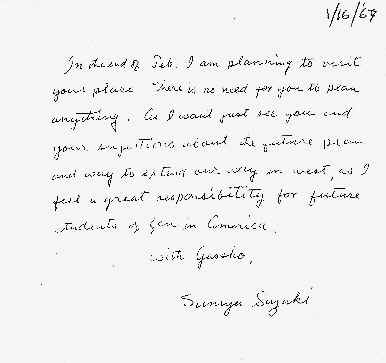 1/16/67
In the end of Feb. I am planning to visit
your place. There is no need for you to plan
anything. As I want just see you and
your sugestions about the future plan
and way to extend our way in west, as I
feel a great responsibility for future
students of Zen in America.
with Gassho,
Sunryu Suzuki